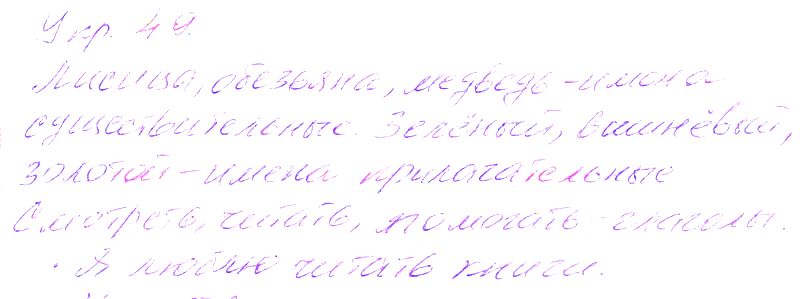 Укр. 49.
Лисица, обезьяна, медведь - имена
существительные. Зелёный, вишнёвый,
золотой - имена прилагательные
Смотреть, читать, помогать - глаголы.
· Я люблю читать книги.